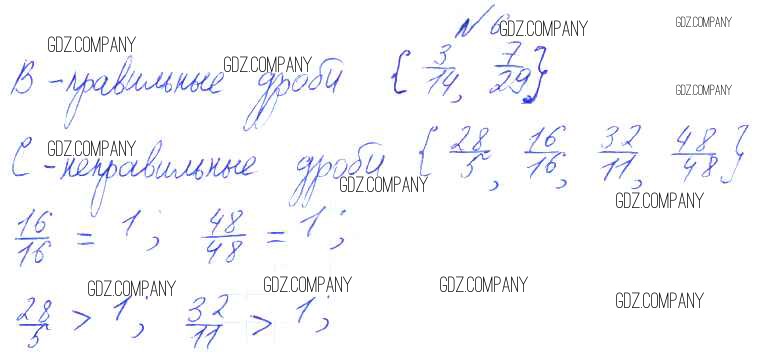 № 6
GDZ.COMPANY
GDZ.COMPANY
GDZ.COMPANY
GDZ.COMPANY
B - правильные дроби { 3/14, 7/29 }
GDZ.COMPANY
GDZ.COMPANY
C - неправильные дроби { 28/5, 16/16, 32/11, 48/48 }
GDZ.COMPANY
GDZ.COMPANY
16/16 = 1; 48/48 = 1;
GDZ.COMPANY
GDZ.COMPANY
GDZ.COMPANY
GDZ.COMPANY
28/5 > 1; 32/11 > 1;